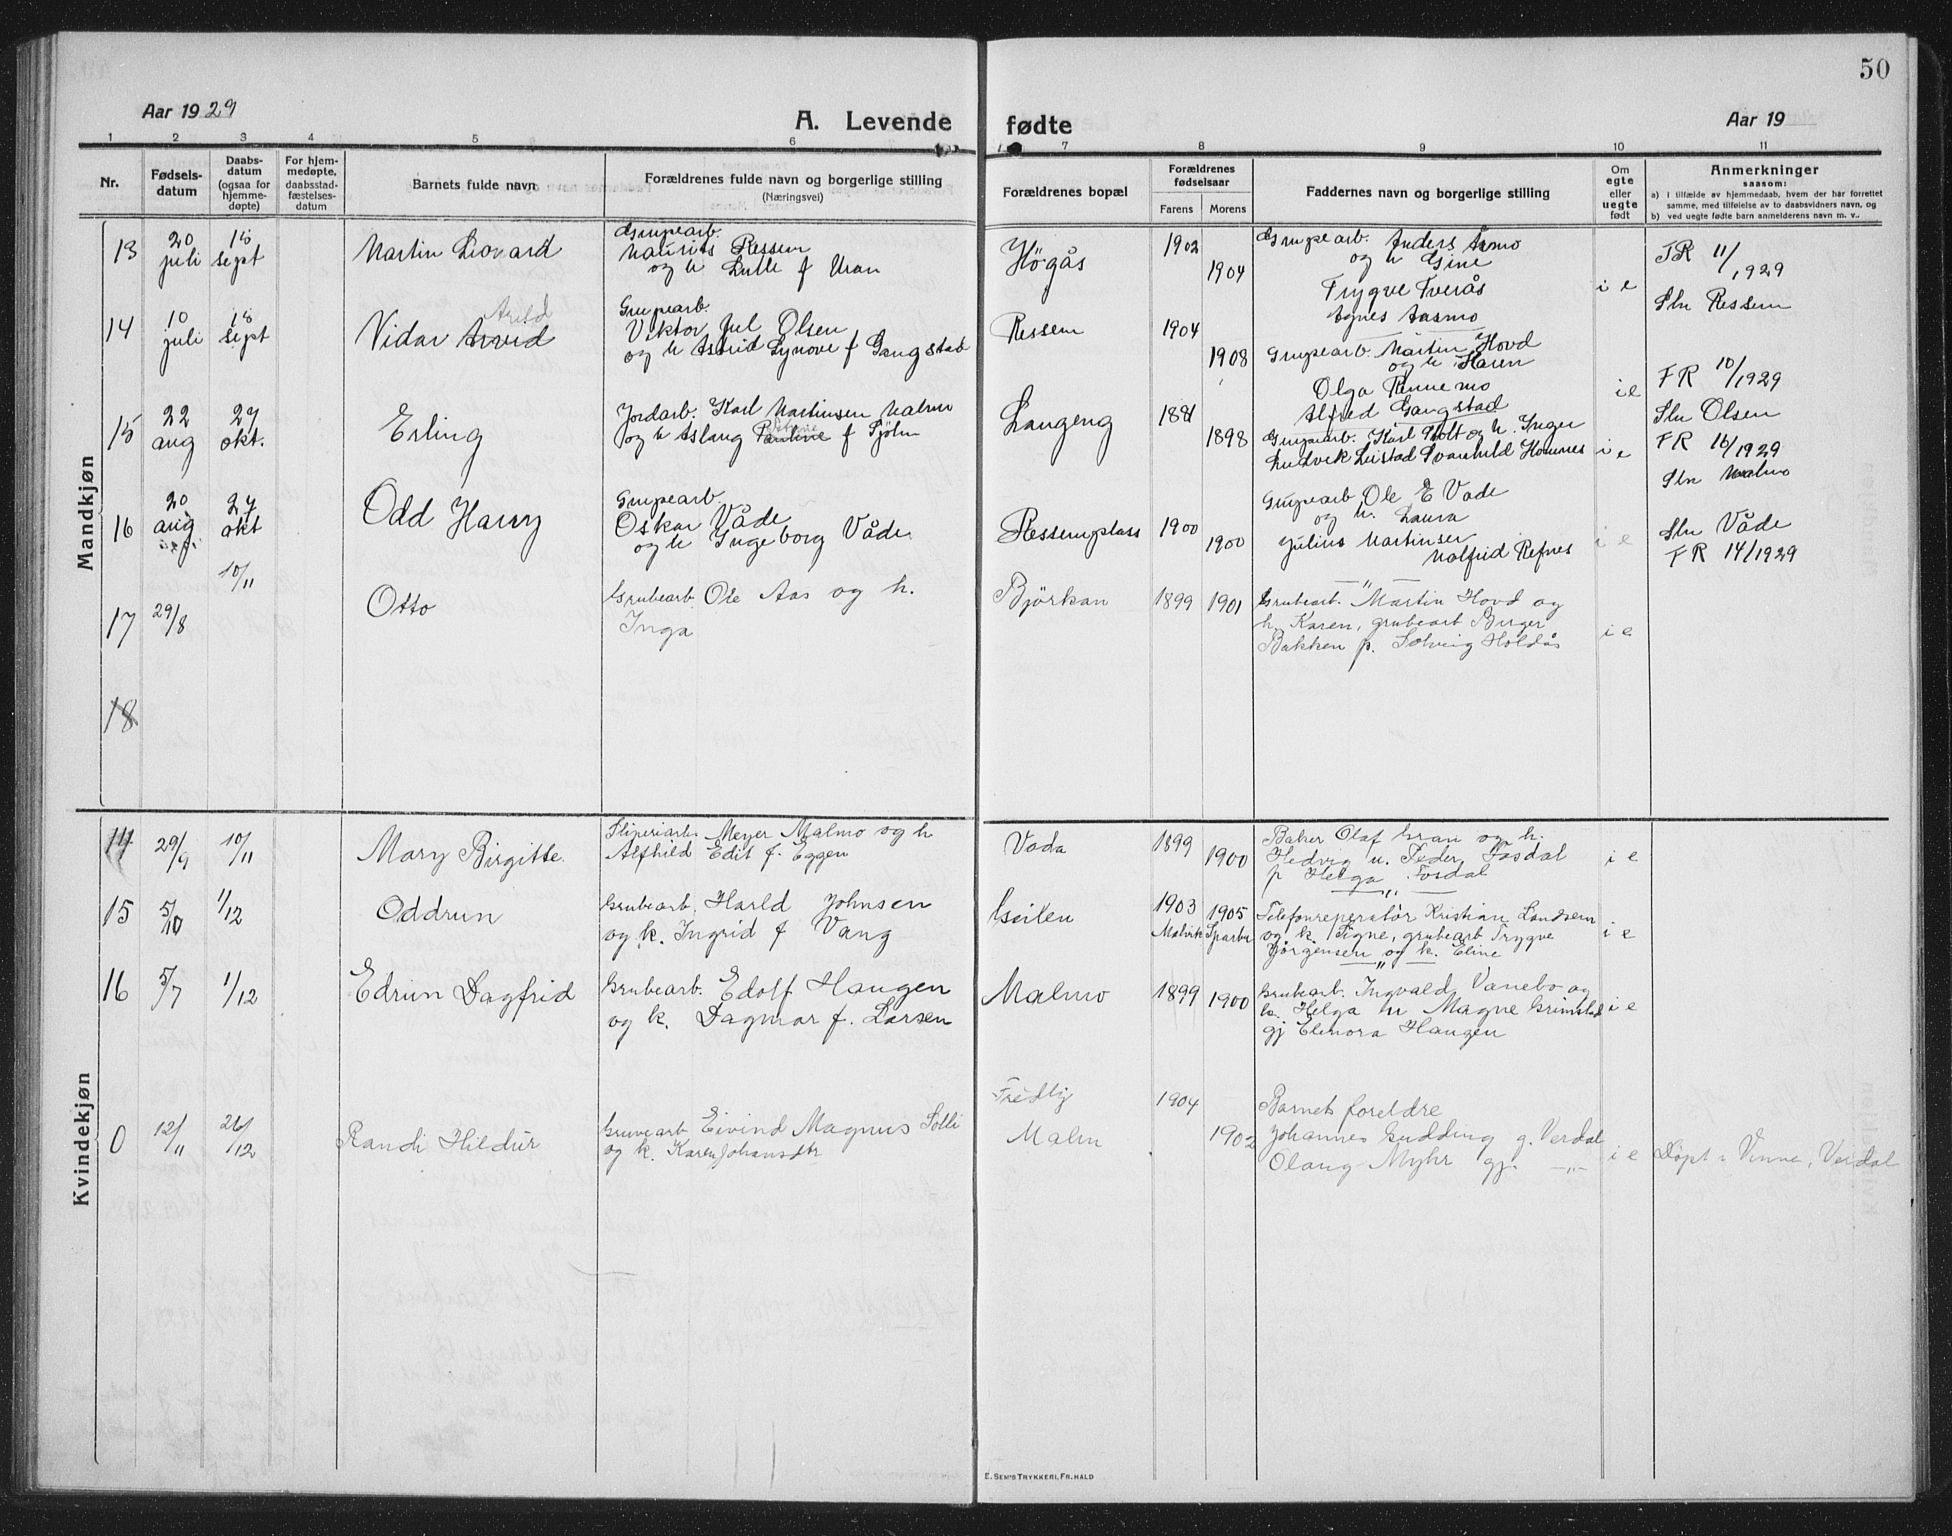 50
Aar 1929
A. Levende fødte
Aar 19
1 2 3 4 5 6 7 8 9 10 11
Nr.
Fødsels-
datum
Daabs-
datum
(ogsaa for
hjemme-
døpte)
For hjem-
medøpte,
daabsstad-
fæstelses-
datum
Barnets fulde navn
Forældrenes fulde navn og borgerlige stilling
(Næringsvei)
Forældrenes bopæl
Forældrenes
fødselsaar
Farens Morens
Faddernes navn og borgerlige stilling
Om
egte
eller
uegte
født
Anmerkninger
saasom:
a) i tilfælde av hjemmedaab, hvem der har forrettet
samme, med tilføielse av to daabsvidners navn, og
b) ved uegte fødte barn anmelderens navn m. v..
Mandkjøn
13 20 juli sept Martin
Ressem
og h f Uran
Høgås 1902 1904
Anders
og h Gine
Trygve Tverås
Agnes Aasmo
i e
11/1929
Ressem
14 10 juli sept Vidar Arvid
Arild
Viktor Jul Olsen
og h Astrid Synove f Gangstad
Ressem 1904 1908
Martin Hovd
og h Karen
Olga Rennemo
Alfred Gangstad
i e
FR 10/1929
Olsen
15 22 aug 27 okt. Erling
Jordarb. Karl Martinsen Malmo
og h Aslaug Pauline f Sjølm
Langeng 1898
Karl Holt og h. Inger
Ludvik Leistad Svanhild Homnes
i e
FR 16/1929
Malmo
16 20 aug 27 okt Odd Harry
Oskar Våde
og h Ingeborg Våde
Ressemplass 1900 1900
Ole E Vade
og h. Laura
Julius Martinsen
Malfrid Refnes
i e
Våde
FR 14/1929
17 29/8 10/11 Otto
Grubearb. Ole Aas og h.
Inga
Bjørkan 1899 1901
Grubearb. Martin Hovd og
h. Karen, grubearb Birger
Bakken p. Solveig Holdås
i e
18
Kvindekjøn
14 29/9 10/11 Mary Birgitte
Meyer Malmo og h
Alfhild Edit f. Eggen
Vada 1899 1900
Baker Olaf Kran og h.
Hedvig u. Peder Fosdal
p Helga Fosdal
i e
15 5/10 1/12 Oddrun
Grubearb. Harald Johnsen
og k. Ingrid f Vang
Geilen 1903 1905
Malvik Sparbu
Telefonreperatör Kristian Landsem
og k. Signe, grubearb Trygve
Jörgensen og k. Eline
i e
16 5/7 1/12 Edrun Dagfrid
Grubearb. Edolf Haugen
og k. Dagmar f. Larsen
Malmo 1899 1900
Grubearb. Ingvald Vanebo og
k. Helga u Magne Grimstad
gj Elenora Haugen
i e
0 12/11 26/12 Randi Hildur
Gruvearb Eivind Magnus Solli
og k. Karen Johansdtr
Fredlig
Malm 1904 1902
Barnets foreldre
Johannes Gudding g. Verdal
Olaug Myhr gj. —"—
i e
Døpt i Vinne, Verdal
E. SEM'S TRYKKERI, FR. HALD